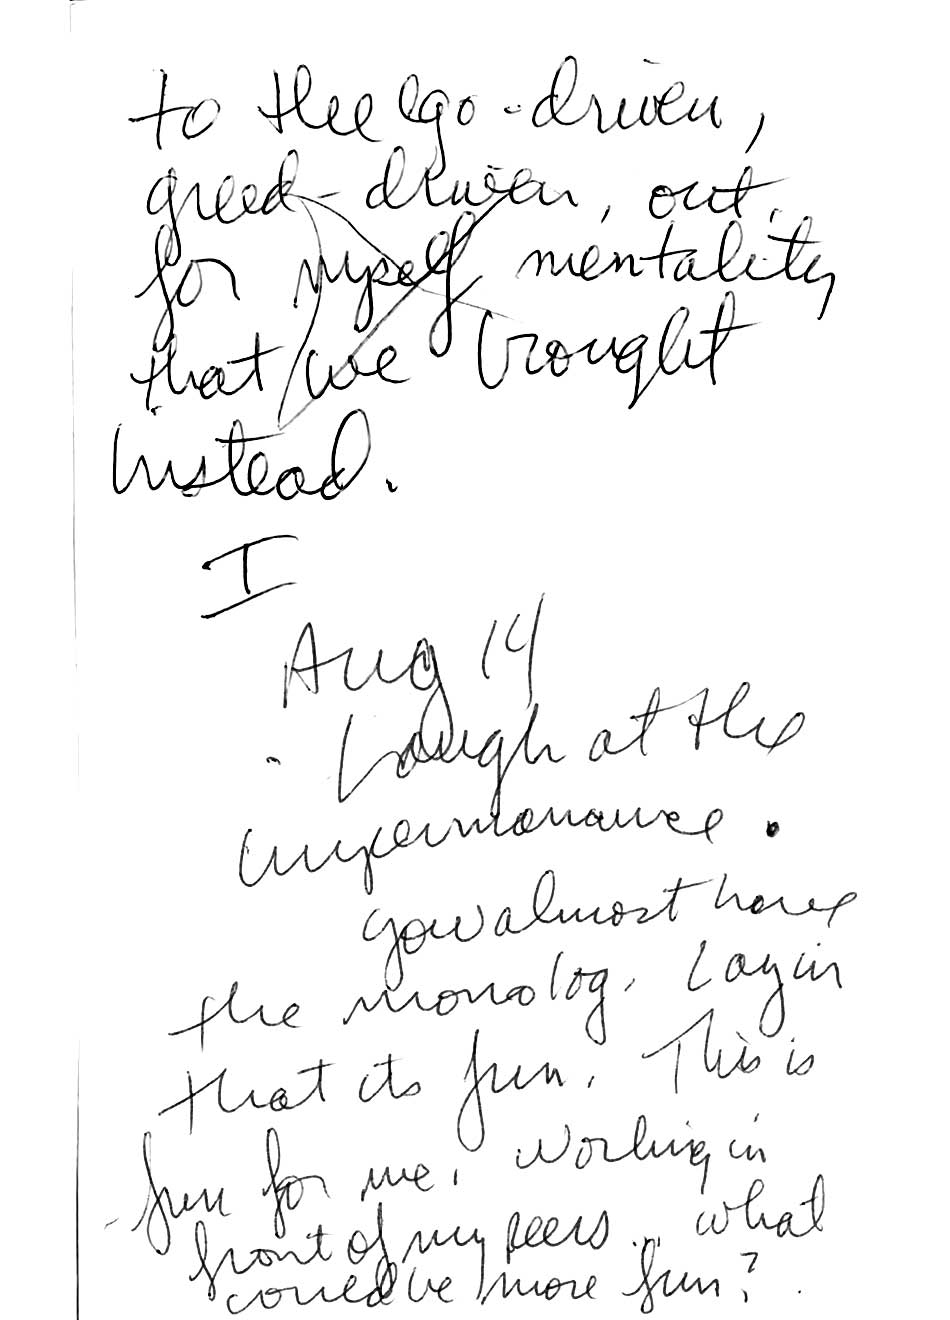 to the ego-driven,
greed-driven, out
for myself mentality
that we brought
instead.
I
Aug 14
. Laugh at the
impermanance.
You almost have
the monolog. Lay in
that its fun. This is
fun for me. Working in
front of my peers... what
could be more fun?